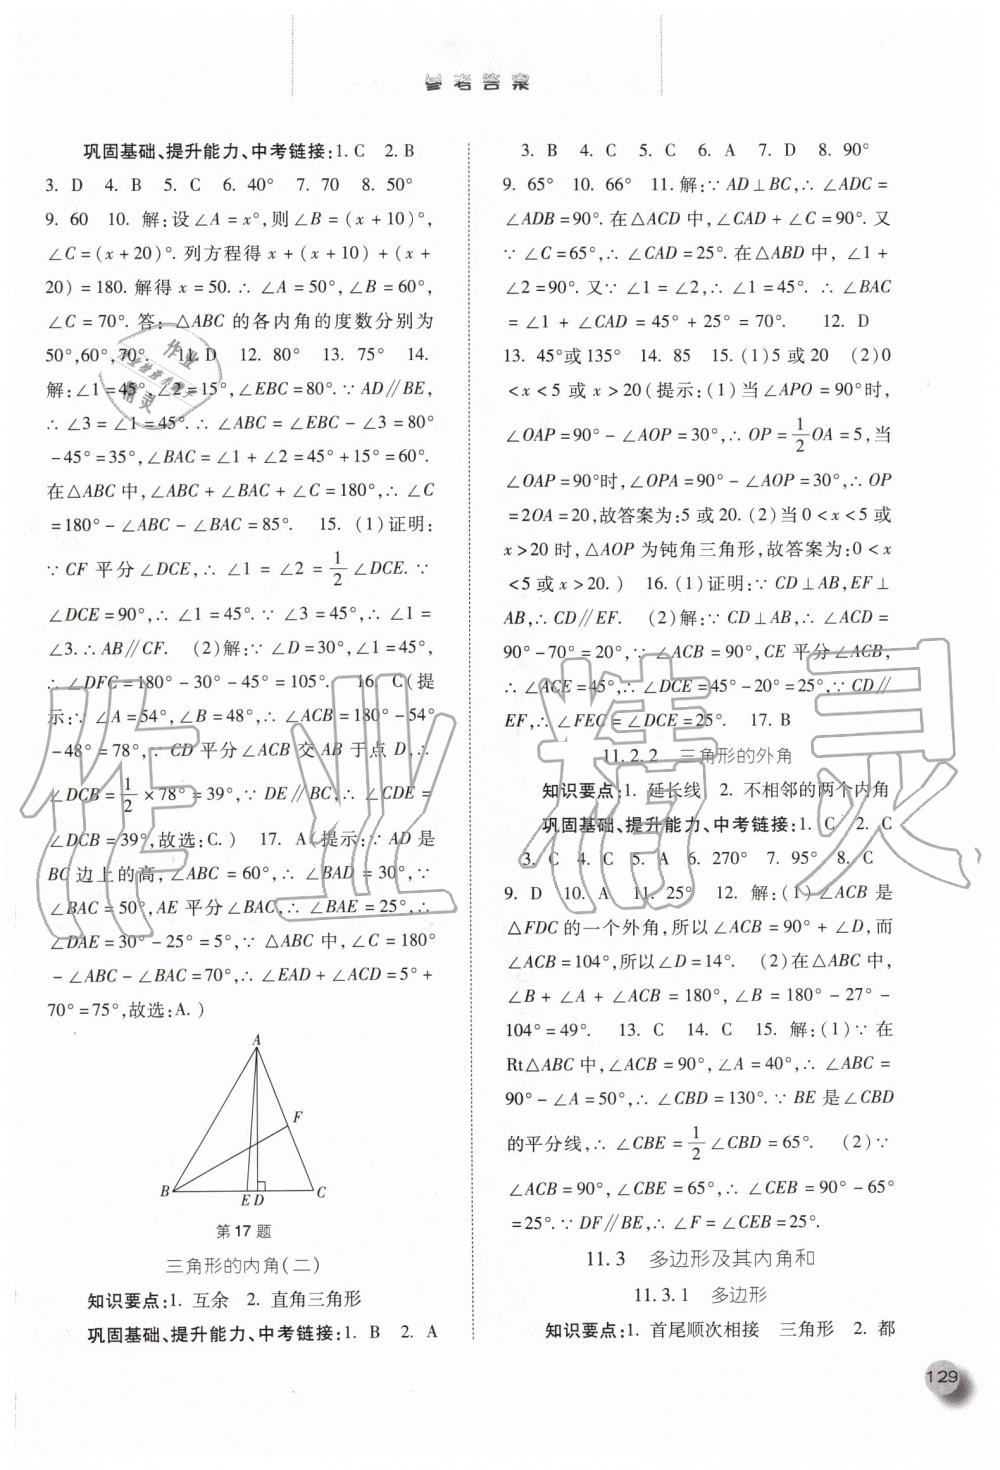 参考答案
巩固基础、提升能力、中考链接:1. C 2. B
3. D 4. B 5. C 6. 40° 7. 70 8. 50°
9. 60 10. 解:设∠A=x°,则∠B=(x+10)°,
∠C=(x+20)°. 列方程得 x+(x+10)+(x+
20)=180. 解得 x=50. ∴∠A=50°,∠B=60°,
∠C=70°. 答: △ABC 的各内角的度数分别为
50°,60°,70°. 11. D 12. 80° 13. 75° 14.
解:∠1=45°,∠2=15°,∠EBC=80°. ∵AD∥BE,
∴∠3=∠1=45°. ∴∠ABC=∠EBC-∠3=80°
-45°=35°,∠BAC=∠1+∠2=45°+15°=60°.
在△ABC 中,∠ABC+∠BAC+∠C=180°,∴∠C
=180°-∠ABC-∠BAC=85°. 15. (1)证明:
∵CF 平分∠DCE,∴∠1=∠2=1/2∠DCE. ∵
∠DCE=90°,∴∠1=45°. ∵∠3=45°,∴∠1=
∠3. ∴AB∥CF. (2)解:∵∠D=30°,∠1=45°,
∴∠DFC=180°-30°-45°=105°. 16. C(提
示:∵∠A=54°,∠B=48°,∴∠ACB=180°-54°
-48°=78°,∵CD 平分∠ACB 交 AB 于点 D,∴
∠DCB=1/2×78°=39°,∵DE∥BC,∴∠CDE=
∠DCB=39°,故选:C. ) 17. A(提示:∵AD 是
BC 边上的高,∠ABC=60°,∴∠BAD=30°,∵
∠BAC=50°,AE 平分∠BAC,∴∠BAE=25°,∴
∠DAE=30°-25°=5°,∵△ABC 中,∠C=180°
-∠ABC-∠BAC=70°,∴∠EAD+∠ACD=5°+
70°=75°,故选:A. )
A
F
B E D C
第 17 题
三角形的内角(二)
知识要点:1. 互余 2. 直角三角形
巩固基础、提升能力、中考链接:1. B 2. A
3. B 4. C 5. C 6. A 7. D 8. 90°
9. 65° 10. 66° 11. 解:∵AD⊥BC,∴∠ADC=
∠ADB=90°. 在△ACD 中,∠CAD+∠C=90°. 又
∵∠C=65°,∴∠CAD=25°. 在△ABD 中,∠1+
∠2=90°. 又∵∠1=∠2,∴∠1=45°. ∴∠BAC
=∠1+∠CAD=45°+25°=70°. 12. D
13. 45°或 135° 14. 85 15. (1)5 或 20 (2)0
<x<5 或 x>20(提示:(1)当∠APO=90°时,
∠OAP=90°-∠AOP=30°,∴OP=1/2OA=5,当
∠OAP=90°时,∠OPA=90°-∠AOP=30°,∴OP
=2OA=20,故答案为:5 或 20. (2)当 0<x<5 或
x>20 时,△AOP 为钝角三角形,故答案为:0<x
<5 或 x>20. ) 16. (1)证明:∵CD⊥AB,EF⊥
AB,∴CD∥EF. (2)解:∵CD⊥AB,∴∠ACD=
90°-70°=20°,∵∠ACB=90°,CE 平分∠ACB,
∴∠ACE=45°,∴∠DCE=45°-20°=25°,∵CD∥
EF,∴∠FEC=∠DCE=25°. 17. B
11.2.2 三角形的外角
知识要点:1. 延长线 2. 不相邻的两个内角
巩固基础、提升能力、中考链接:1. C 2. C
3. C 4. C 5. A 6. 270° 7. 95° 8. C
9. D 10. A 11. 25° 12. 解:(1)∠ACB 是
△FDC 的一个外角,所以∠ACB=90°+∠D,而
∠ACB=104°,所以∠D=14°. (2)在△ABC 中,
∠B+∠A+∠ACB=180°,∠B=180°-27°-
104°=49°. 13. C 14. C 15. 解:(1)∵在
Rt△ABC 中,∠ACB=90°,∠A=40°,∴∠ABC=
90°-∠A=50°,∴∠CBD=130°. ∵BE 是∠CBD
的平分线,∴∠CBE=1/2∠CBD=65°. (2)∵
∠ACB=90°,∠CBE=65°,∴∠CEB=90°-65°
=25°. ∵DF∥BE,∴∠F=∠CEB=25°.
11.3 多边形及其内角和
11.3.1 多边形
知识要点:1. 首尾顺次相接 三角形 2. 都
129
作业精灵